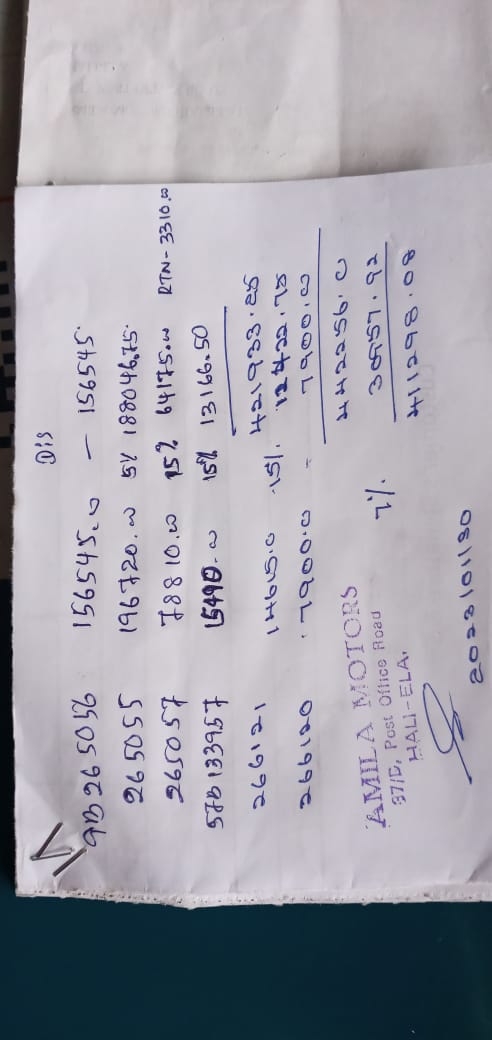 Dis
9B265056 156545.00 - 156545.
265055 196720.00 5% 188046.75.
265057 78810.00 15% 64175.00 RTN-3310.00
57B133957 15490.00 15% 13166.50
421933.25
266121 14615.0 15% 12422.75
266120 7900.0 - 7900.00
442256.0
7% 30957.92
411298.08
AMILA MOTORS
37/D, Post Office Road
HALI-ELA.
2023/01/30